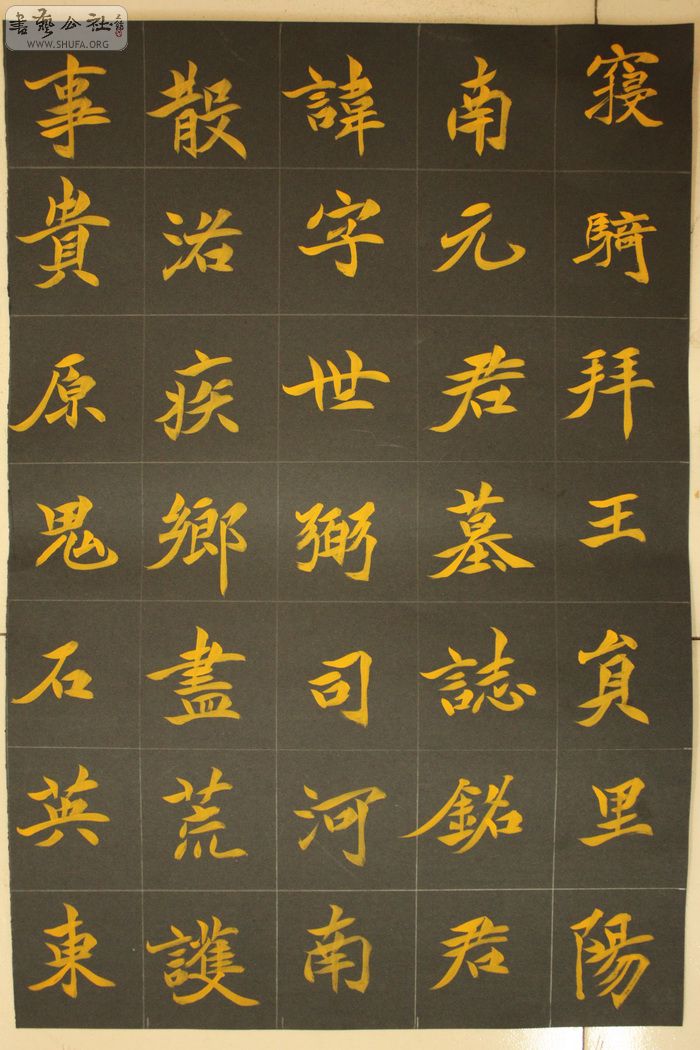 書藝公社
WWW.SHUFA.ORG
寝騎拜王員里陽
南元君墓誌銘君
諱字世弼司河南
散浴疾鄉盡荒護
事貴原鬼石英東